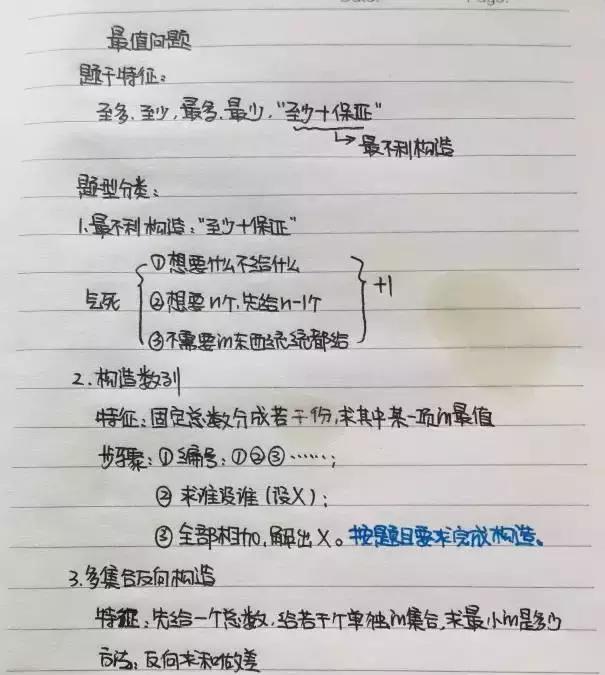 Page:
最值问题
题干特征:
至多、至少,最多、最少,“至少+保证”
→最不利构造
题型分类:
1.最不利构造:“至少+保证”
①想要什么不给什么
气死 ②想要n个,先给n-1个 +1
③不需要的东西统统都给
2.构造数列
特征:固定总数分成若干份,求其中某一项的最值
步骤:①编号:①②③……;
②求谁设谁(设X);
③全部相加,解出X。按题目要求完成构造。
3.多集合反向构造
特征:先给一个总数,给若干个单独的集合,求最小的是多少
方法:反向求和做差